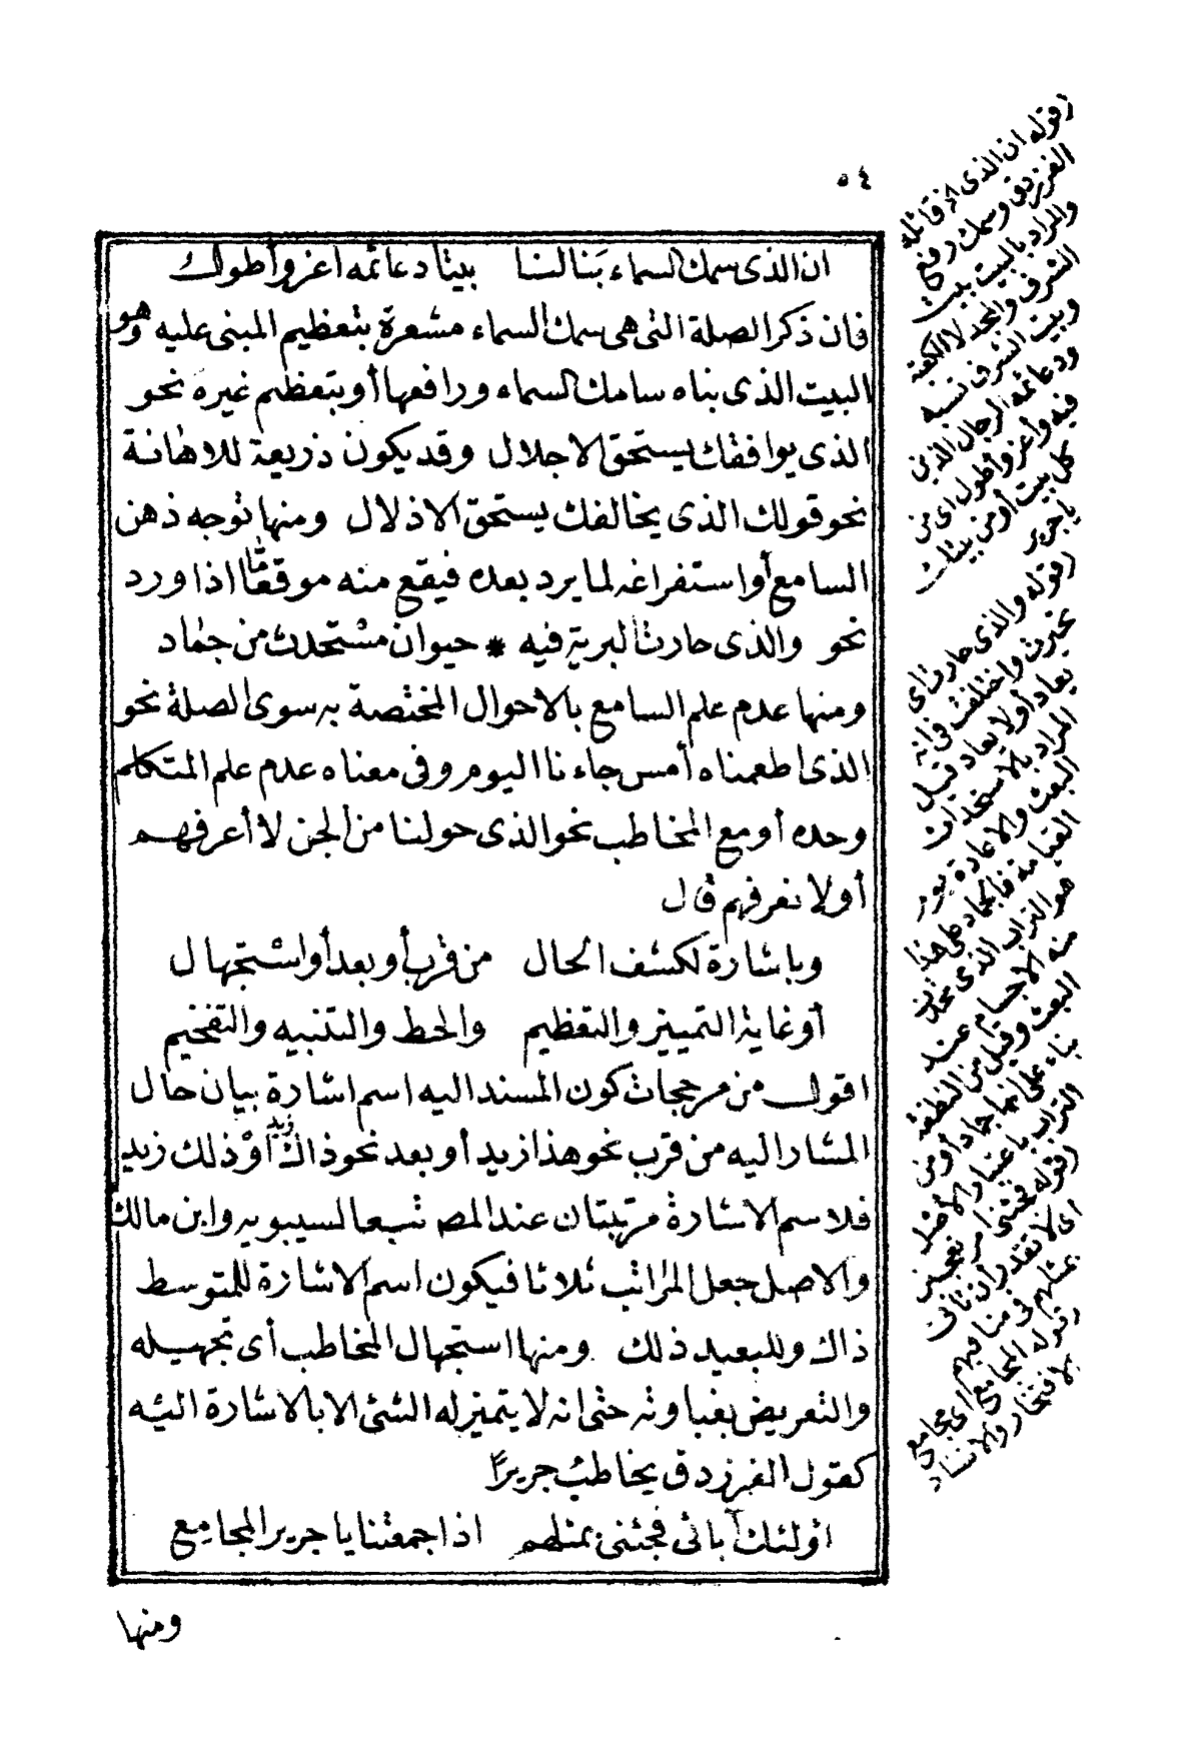 ٥٤
ان الذى سمك السماء بنا لنا بيتا دعائمه اعز وأطول
فان ذكر الصلة التى هى سمك السماء مشعرة بتعظيم المبنى عليه وهو
البيت الذى بناه سامك السماء ورافعها أو بتعظيم غيره نحو
الذى يوافقك يستحق الاجلال وقد يكون ذريعة للاهانة
نحو قولك الذى يخالفك يستحق الاذلال ومنها توجه ذهن
السامع أو استفراغه لما يرد بعده فيقع منه موقعا اذا ورد
نحو والذى حارت البرية فيه * حيوان مستحدث من جماد
ومنها عدم علم السامع بالاحوال المختصة به سوى الصلة نحو
الذى اطعمناه أمس جاءنا اليوم وفى معناه عدم علم المتكلم
وحده أو مع المخاطب نحو الذى حولنا من الجن لا أعرفهم
أو لا نعرفهم قال
وباشارة لكشف الحال من قرب أو بعد أو استجهال
أو غاية التمييز والتعظيم والحط والتنبيه والتفخيم
اقول من مرجحات كون المسند اليه اسم اشارة بيان حال
المشار اليه من قرب نحو هذا زيد أو بعد نحو ذاك زيد أو ذلك زيد
فلاسم الاشارة مرتبتان عند المص تبعا لسيبويه وابن مالك
والاصل جعل المراتب ثلاثا فيكون اسم الاشارة للمتوسط
ذاك وللبعيد ذلك ومنها استجهال المخاطب أى تجهيله
والتعريض بغباوته حتى انه لا يتميز له الشئ الا بالاشارة اليه
كقول الفرزدق يخاطب جريرا
اولئك آبائى فجئنى بمثلهم اذا جمعتنا يا جرير المجامع
ومنها
(قوله ان الذى الخ قائله
الفرزدق وسمك رفع
والمراد بالبيت بيت
الشرف والمجد لا الكعبة
وبيت الشرف نسبه
ودعائمه الرجال الذين
فيه واعز وأطول اى من
كل بيت أو من بيتك
يا جرير
(قوله والذى حارت اى
تحيرت واختلفت فى انه
يعاد أو لا يعاد قيل
المراد بالاستحداث
البعث والاعادة يوم
القيامة فالجماد على هذا
هو التراب الذى تخلق
منه الاجسام عند
البعث وقيل من النطفة
بناء على انها جماد أو من
التراب باعتبار الاصل
(قوله فجئنى امر تعجيز
اى لا تقدر أن تأتى
بمثلهم فى مناقبهم
(قوله المجامع اى مجامع
الافتخار والانشاد